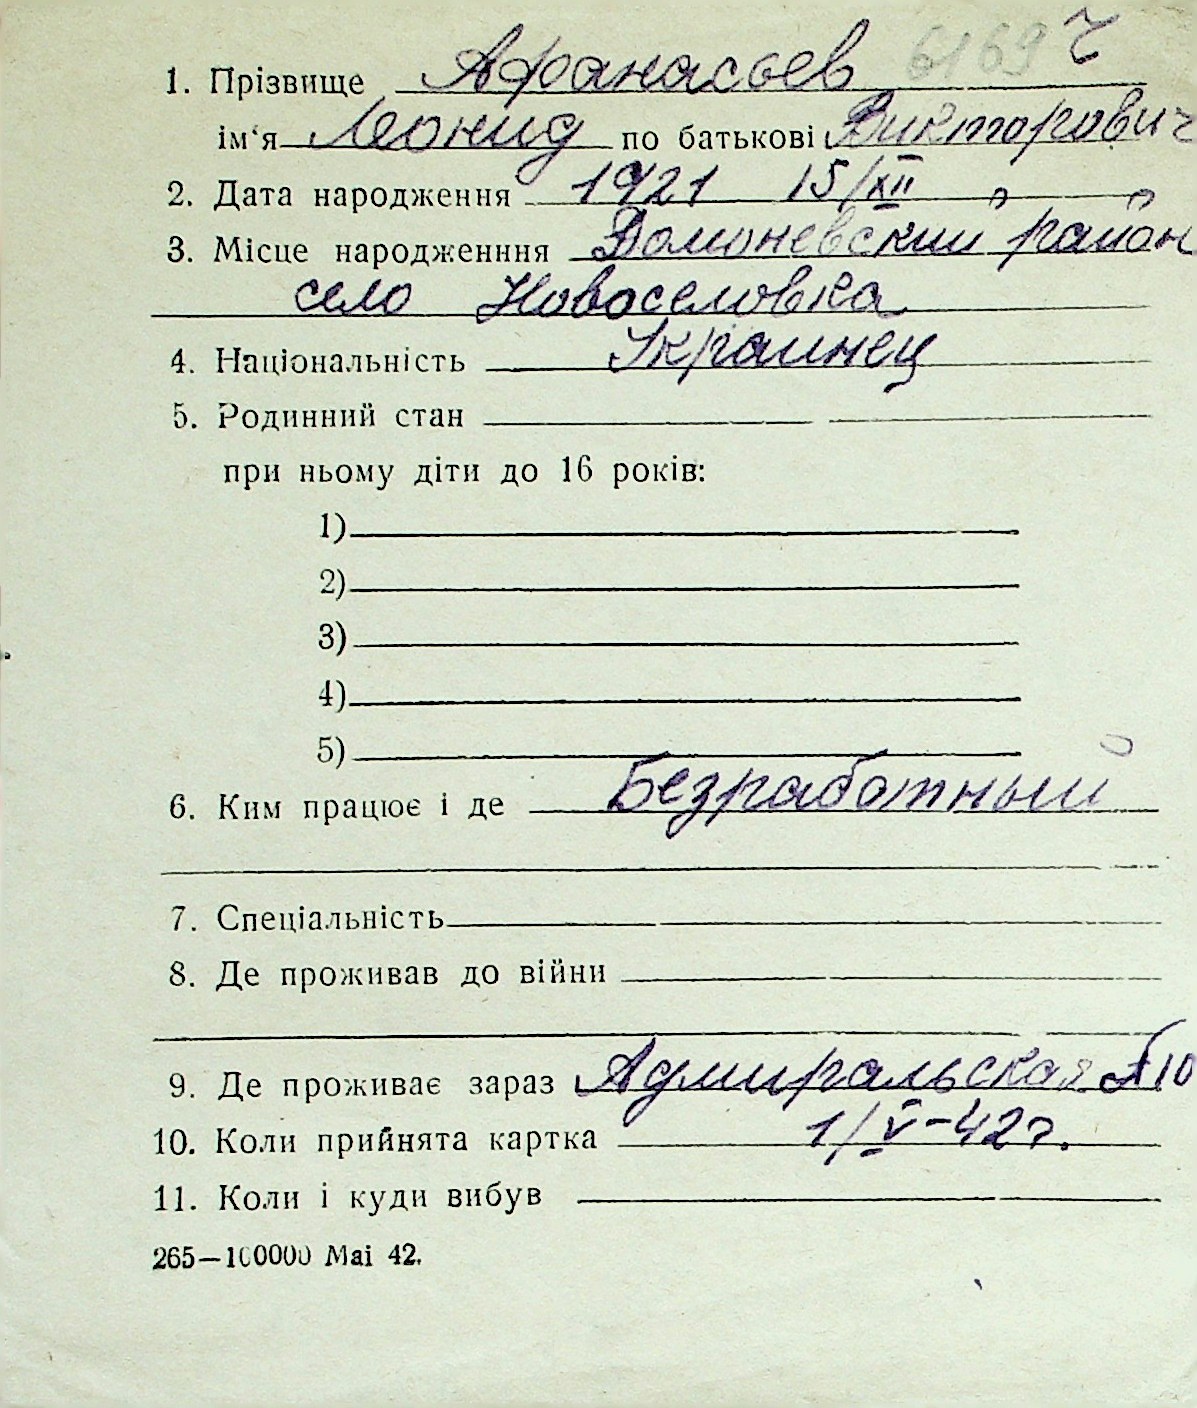 1. Прізвище Афанасьев 6169 г
ім‘я Леонид по батькові Викторович
2. Дата народження 1921 15/XII
3. Місце народженння Домоневский район
село Новоселовка
4. Національність Украинец
5. Родинний стан
при ньому діти до 16 років:
1)
2)
3)
4)
5)
6. Ким працює і де Безработный
7. Спеціальність
8. Де проживав до війни
9. Де проживає зараз Адмиральская 10
10. Коли прийнята картка 1/V-42г.
11. Коли і куди вибув
265—100000 Mai 42.